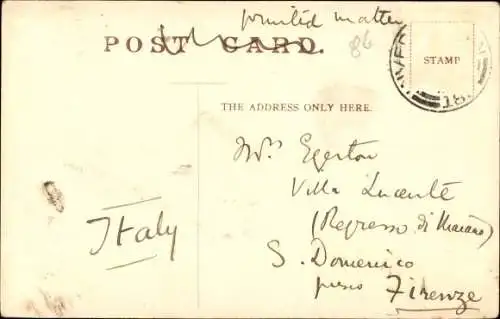 printed matter
POST CARD.
86
STAMP
THE ADDRESS ONLY HERE.
Mrs Egerton
Villa
(Regresso di Maiano)
S. Domenico
presso Firenze
Italy